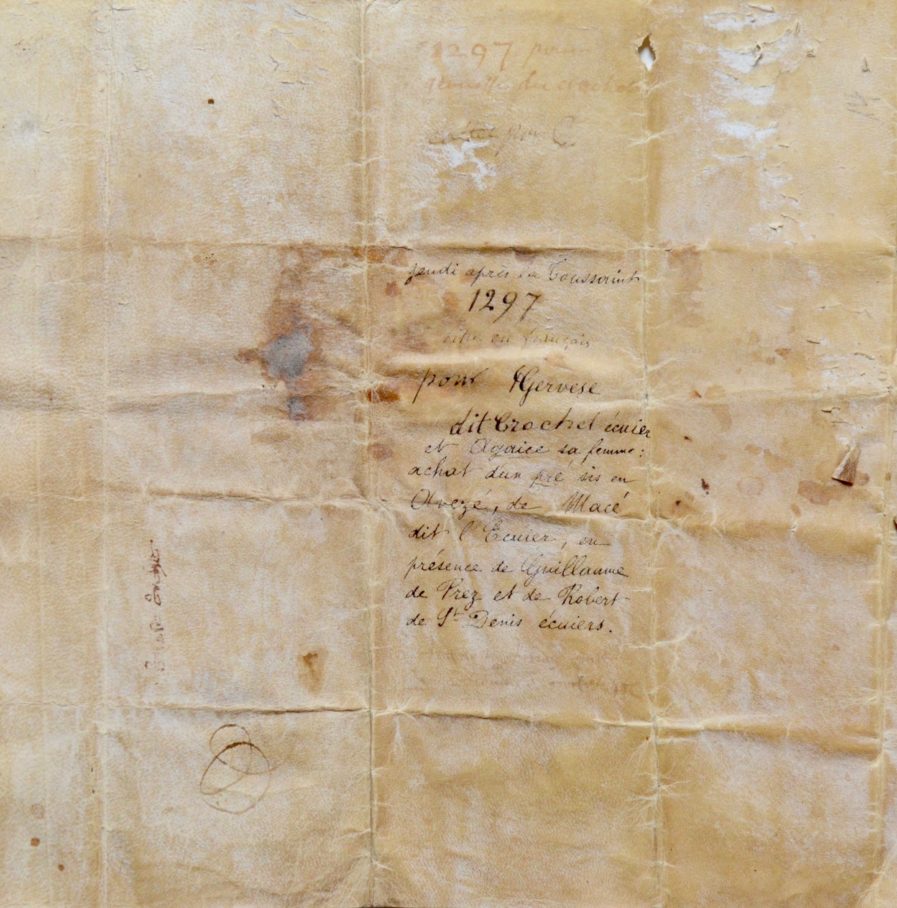 1297 pour
jeudi après la Toussaint
1297
en français
pour Gervese
dit Crochet écuier
et Agaice sa femme:
achat d'un pré sis en
Avezé, de Macé
dit l'Ecuier, en
présence de Guillaume
de Prez et de Robert
de St Denis écuiers.